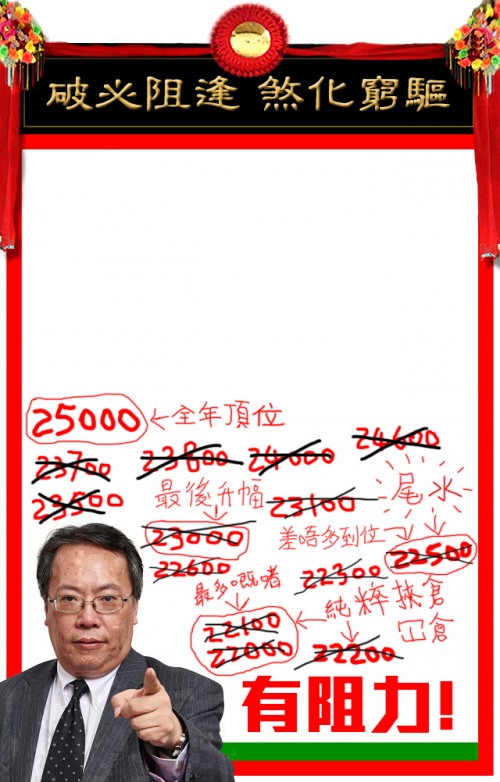 驅窮化煞 逢阻必破
25000 ←全年頂位
23700 23800 24000 24600
23500 最後升幅 23100 尾水
23000 差唔多到位 22500
22600 最多嘅啫 22300 純粹挾倉
冚倉
22100
22000 22200
有阻力!